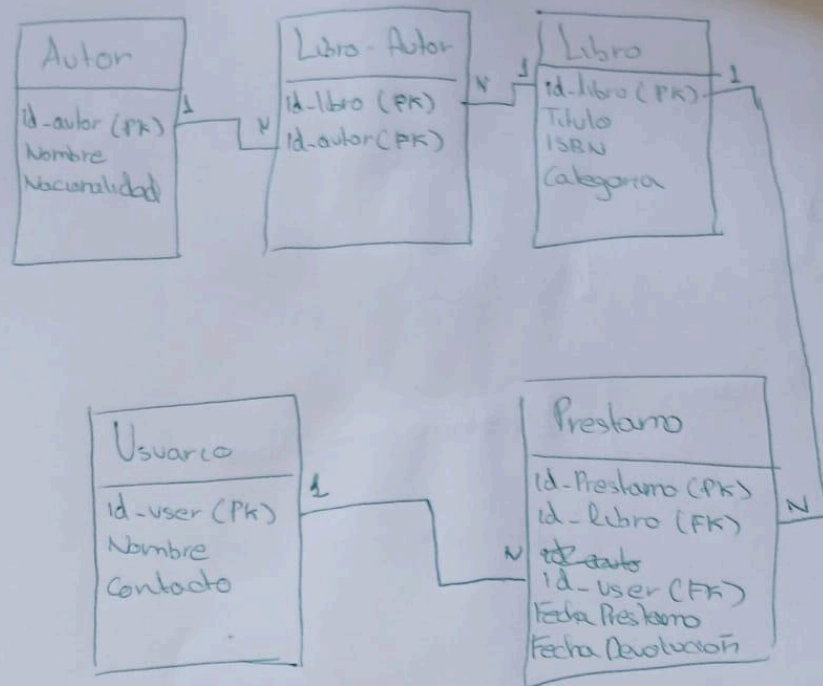 Autor
id-autor (PK)
Nombre
Nacionalidad
1
N
Libro-Autor
id-libro (PK)
id-autor (PK)
N
1
Libro
id-libro (PK)
Titulo
ISBN
Categoria
1
Usuario
id-user (PK)
Nombre
Contacto
1
N
Prestamo
id-Prestamo (PK)
id-Libro (FK)
id-user (FK)
Fecha Prestamo
Fecha Devolución
N